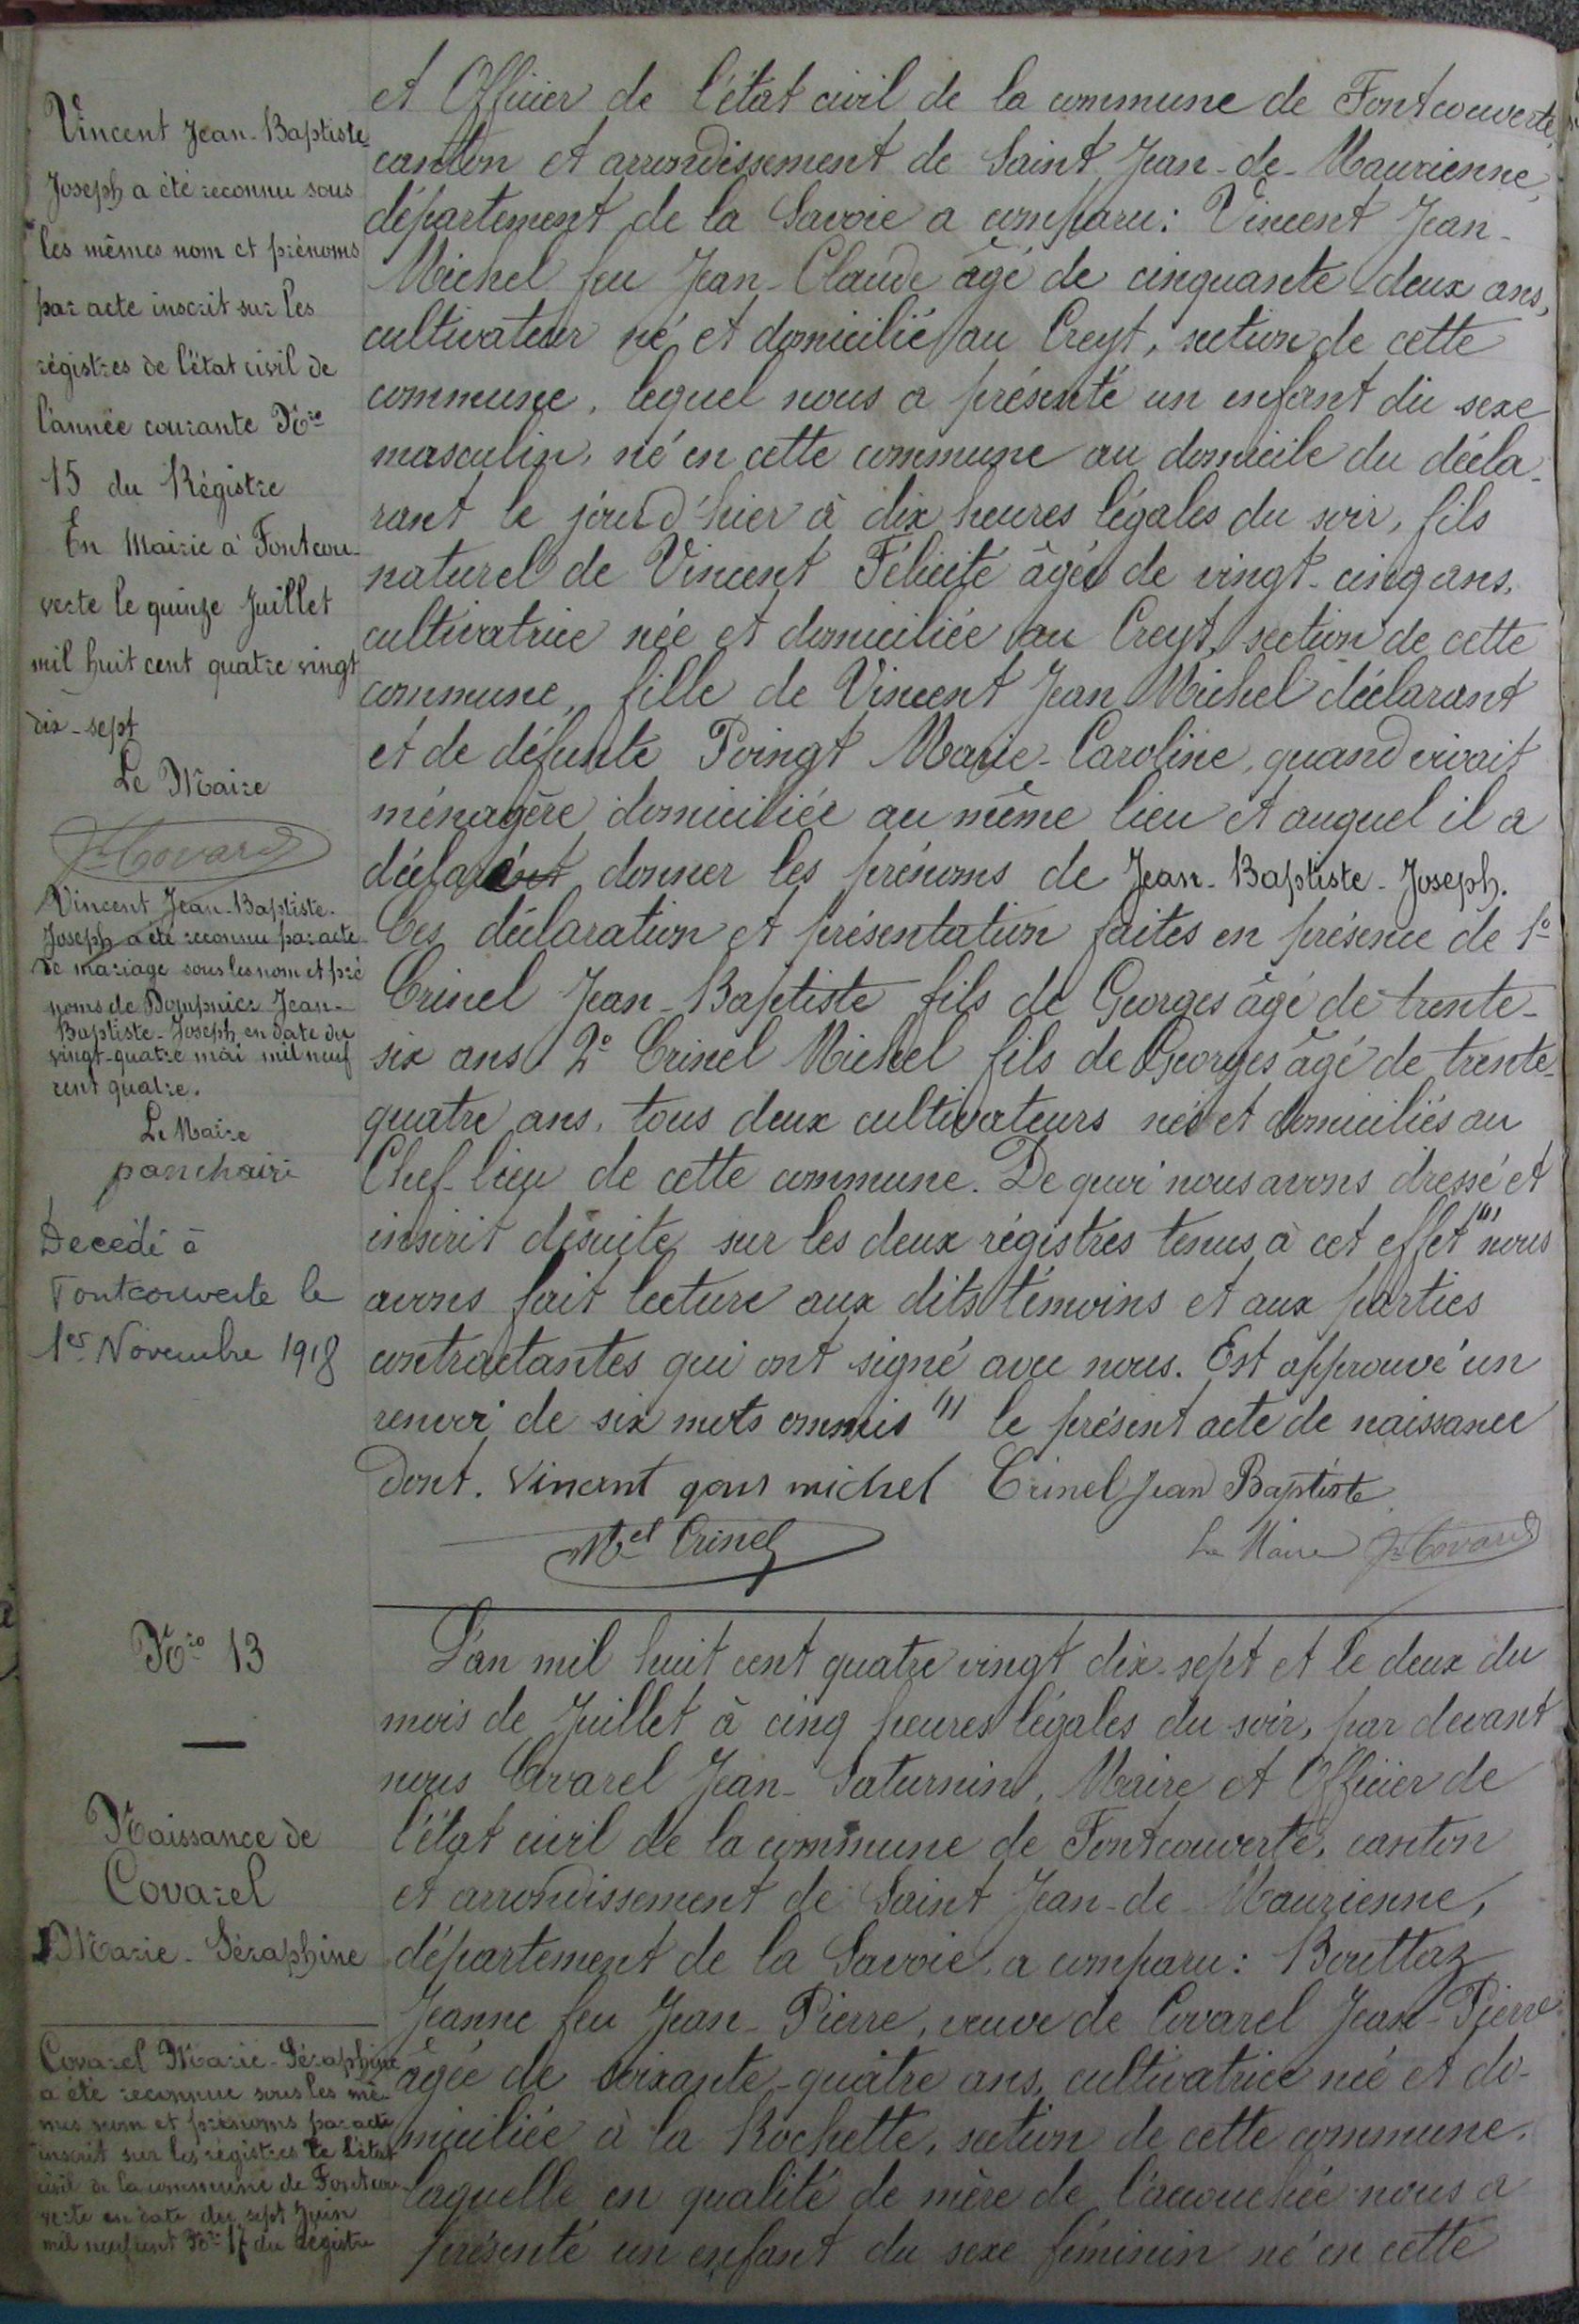 Vincent Jean-Baptiste
Joseph a été reconnu sous
les mêmes nom et prénoms
par acte inscrit sur les
régistres de l'état civil de
l'année courante N°ro
15 du Régistre
En Mairie à Fontcou-
verte le quinze Juillet
mil huit cent quatre vingt
dix-sept
Le Maire
Vincent Jean-Baptiste-
Joseph a été reconnu par acte
de mariage sous les nom et pré
noms de Dompnier Jean-
Baptiste-Joseph en date du
vingt-quatre mai mil neuf
cent quatre.
Le Maire
Decédé à
Fontcouverte le
1er Novembre 1918
et Officier de l'état civil de la commune de Fontcouverte,
canton et arrondissement de Saint Jean-de-Maurienne,
département de la Savoie a comparu: Vincent Jean-
Michel feu Jean-Claude âgé de cinquante-deux ans,
cultivateur né et domicilié au Creyt, section de cette
commune, lequel nous a présenté un enfant du sexe
masculin, né en cette commune au domicile du décla-
rant le jour d'hier à dix heures légales du soir, fils
naturel de Vincent Félicité âgée de vingt-cinq ans,
cultivatrice née et domiciliée au Creyt, section de cette
commune, fille de Vincent Jean Michel déclarant
et de défunte Poingt Marie-Caroline, quand vivait
ménagère domiciliée au même lieu et auquel il a
déclaré donner les prénoms de Jean-Baptiste-Joseph.
Ces déclaration et présentation faites en présence de 1°
Crinel Jean-Baptiste fils de Georges âgé de trente-
six ans 2° Crinel Michel fils de Georges âgé de trente-
quatre ans, tous deux cultivateurs nés et domiciliés au
Chef-lieu de cette commune. De quoi nous avons dressé et
inscrit desuite sur les deux régistres tenus à cet effet (1) nous
avons fait lecture aux dits témoins et aux parties
contractantes qui ont signé avec nous. Est approuvé un
renvoi de six mots ommis (1) le présent acte de naissance
dont. Vincent gons michel Crinel Jean Baptiste
Mel Crinel Le Maire J. Covarel
N°ro 13
Naissance de
Covarel
Marie-Séraphine
Covarel Marie-Séraphine
a été reconnue sous les mê-
mes nom et prénoms par acte
inscrit sur les régistres de l'état
civil de la commune de Fontcou-
verte en date du sept Juin
mil neuf cent N°ro 17 du Régistre
L'an mil huit cent quatre vingt dix-sept et le deux du
mois de Juillet à cinq heures légales du soir, par devant
nous Covarel Jean-Saturnin, Maire et Officier de
l'état civil de la commune de Fontcouverte, canton
et arrondissement de Saint Jean-de-Maurienne,
département de la Savoie, a comparu: Bouttaz
Jeanne feu Jean-Pierre, veuve de Covarel Jean-Pierre
âgée de soixante-quatre ans, cultivatrice née et do-
miciliée à la Rochette, section de cette commune,
laquelle en qualité de mère de l'accouchée nous a
présenté un enfant du sexe féminin né en cette